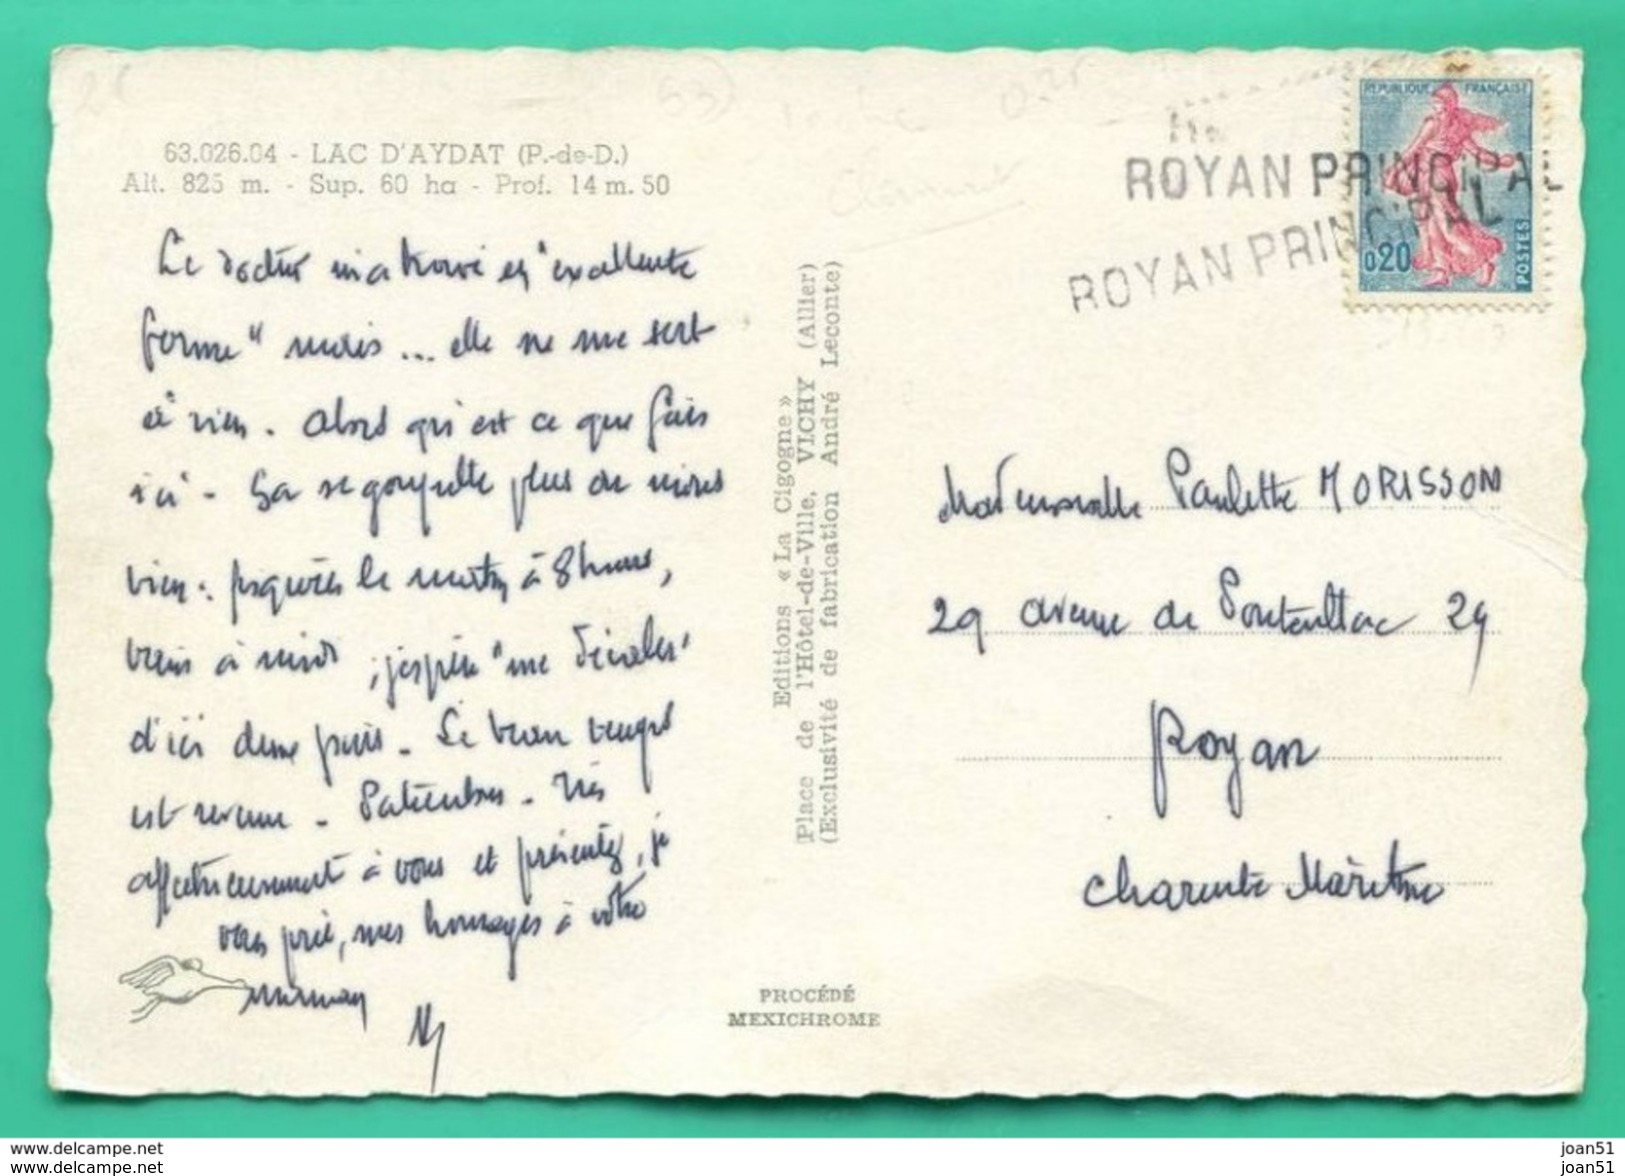 63.026.04 - LAC D'AYDAT (P.-de-D.)
Alt. 825 m. - Sup. 60 ha - Prof. 14 m. 50
Le docteur m'a trouvé en "excellente
forme" mais ... elle ne me sert
à rien. Alors qu'est ce que fais
ici. Ça se goupille plus ou moins
bien : piqûres le matin à 8 heures,
bain à midi, j'espère "me
d'ici deux jours. Le beau temps
est revenu. Très
affectueusement à vous et présentez, je
vous prie, mes hommages à votre
maman
Editions « La Cigogne »
Place de l'Hôtel-de-Ville, VICHY (Allier)
(Exclusivité de fabrication André Leconte)
PROCÉDÉ
MEXICHROME
REPUBLIQUE FRANÇAISE
0,20
POSTES
ROYAN PRINCIPAL
ROYAN PRINCIPAL
Mademoiselle Paulette MORISSON
29 avenue de Pontaillac 29
Royan
Charente Maritime
www.delcampe.net
www.delcampe.net
joan51
joan51